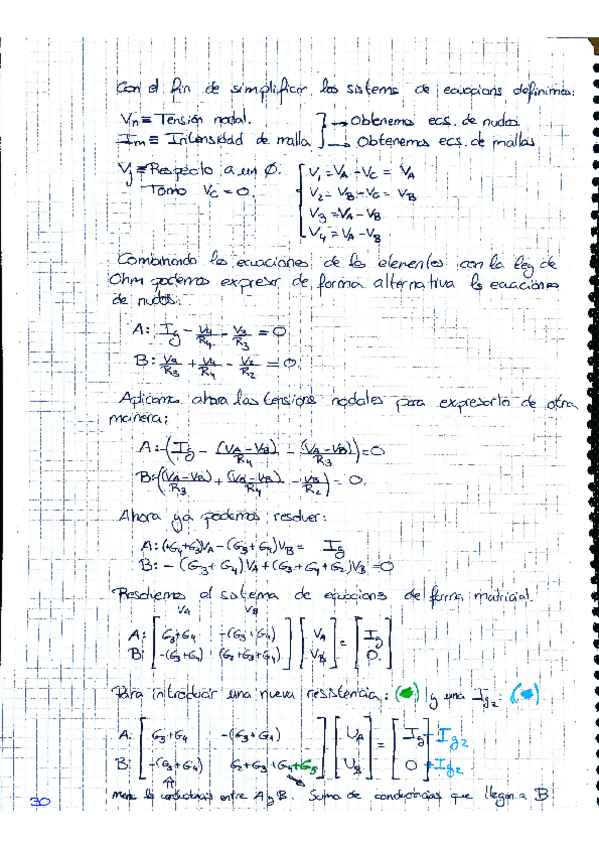 Con el fin de simplificar los sistema de ecuacions definimos:
Vn ≡ Tensión nodal. } → Obtenemos ecs. de nudos
Im ≡ Intensidad de malla } → Obtenemos ecs. de mallas
Vj ≡ Respecto a un Ø. [ V1 = VA - VC = VA
Tomo VC = 0. V2 = VB - VC = VB
V3 = VA - VB
V4 = VA - VB
Combinando las ecuaciones de los elementos con la ley de
Ohm podemos expresar de forma alternativa ls ecuaciones
de nudos:
A: Ig - V4/R4 - V3/R3 = 0
B: V3/R3 + V4/R4 - V2/R2 = 0.
Aplicamos ahora las tensions nodales para expresarlo de otra
manera:
A: -(Ig - (VA - VB)/R4 - (VA - VB)/R3) = 0
B: -((VA - VB)/R3 + (VA - VB)/R4 - VB/R2) = 0.
Ahora ya podemos resolver:
A: (+G4+G3)VA - (G3+G4)VB = Ig
B: - (G3+G4)VA + (G3+G4+G2)VB = 0
Resolvemos el sistema de ecuaciones de forma matricial.
VA VB
A: [ G3+G4 -(G3+G4) ] [ VA ] = [ Ig ]
B: [ -(G3+G4) (G2+G3+G4) ] [ VB ] [ 0. ]
Para introducir una nueva resistencia: ( ) y una Ig2: ( )
A: [ G3+G4 -(G3+G4) ] [ UA ] = [ Ig - Ig2 ]
B: [ -(G3+G4) G2+G3+G4+G5 ] [ UB ] [ 0 + Ig2 ]
Menos ls conductancias entre A y B. Suma de conductancias que llegan a B
30